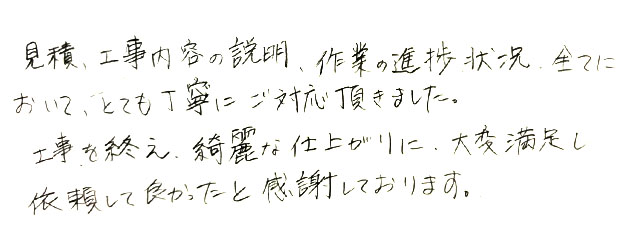 見積、工事内容の説明、作業の進捗状況、全てに
おいて、とても丁寧にご対応頂きました。
工事を終え、綺麗な仕上がりに、大変満足し
依頼して良かったと感謝しております。